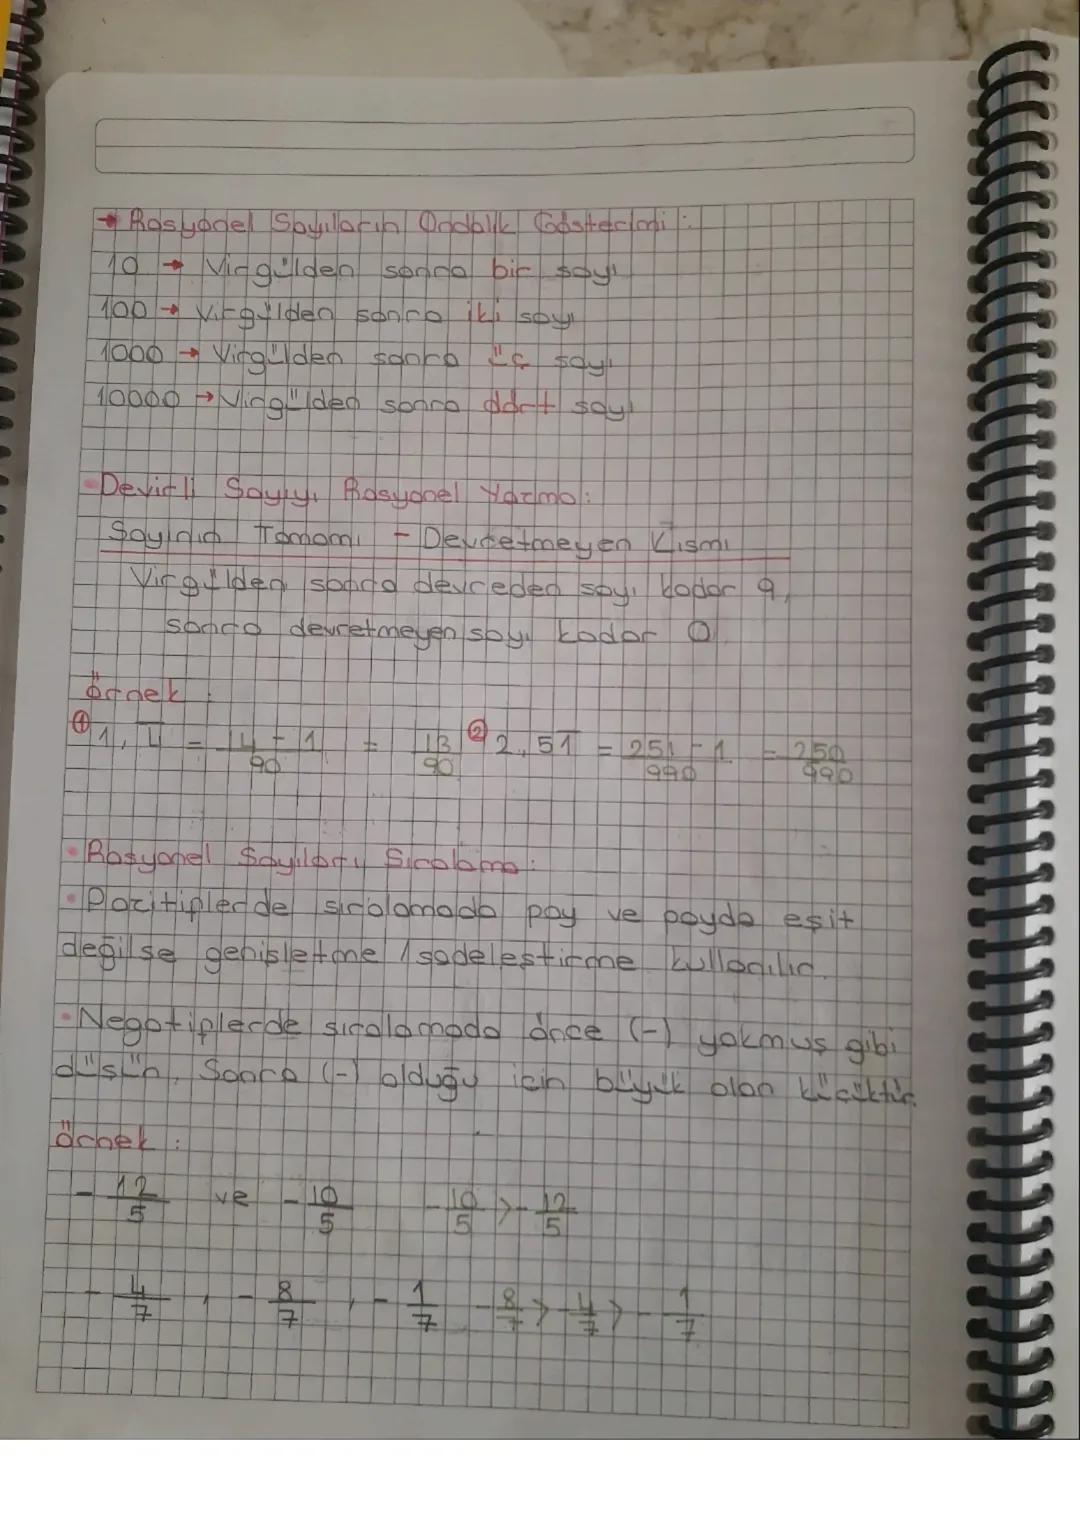 → Rasyonel Sayıların Ondalık Gösterimi :
10 → Virgülden sonra bir sayı
100 → Virgülden sonra iki sayı
1000 → Virgülden sonra üç sayı
10000 → Virgülden sonra dört sayı
• Devirli Sayıyı Rasyonel Yazma :
Sayının Tamamı - Devretmeyen Kısmı
Virgülden sonra devreden sayı kadar 9,
sonra devretmeyen sayı kadar 0
örnek :
① 1,4̅ = 14 - 1 / 90 = 13 / 90 ② 2,5̅1̅ = 251 - 1 / 990 = 250 / 990
• Rasyonel Sayıları Sıralama :
• Pozitiplerde sıralamada pay ve payda eşit
değilse genişletme / sadeleştirme kullanılır.
• Negatiplerde sıralamada önce (-) yokmuş gibi
düşün. Sonra (-) olduğu için büyük olan küçüktür.
örnek :
- 12/5 ve - 10/5 - 10/5 > - 12/5
- 4/7 , - 8/7 , - 1/7 - 8/7 > - 4/7 > - 1/7